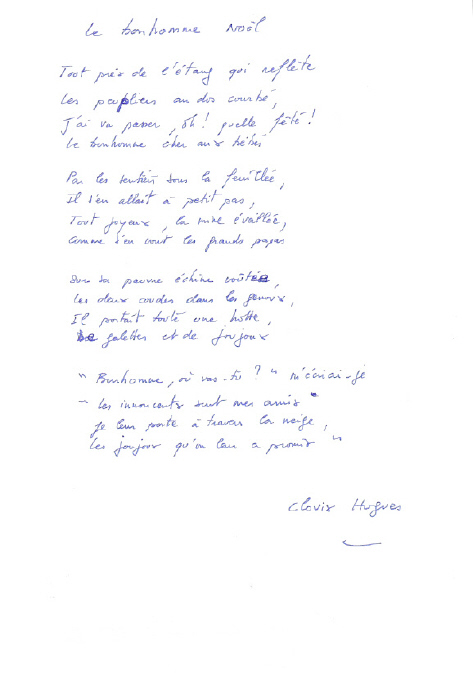 Le bonhomme Noël
Tout près de l'étang qui reflète
Les peupliers au dos courbé,
J'ai vu passer, oh! quelle fête!
Le bonhomme cher aux bébés
Par les sentiers sous la feuillée,
Il s'en allait à petit pas,
Tout joyeux, la mine éveillée,
Comme s'en vont les grands papas
Sur sa pauvre échine voûtée,
Les deux coudes dans les genoux,
Il portait toute une hotte,
De galettes et de joujoux
" Bonhomme, où vas-tu ? " m'écriai-je
- Les innocents sont mes amis
Je leur porte à travers la neige,
Les joujoux qu'on leur a promis "
Clovis Hugues